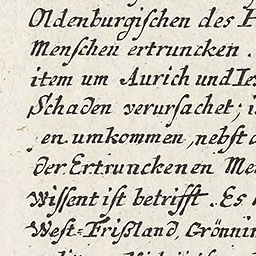 Oldenburgischen des
Menschen ertruncken.
item um Aurich und
Schaden verursachet;
en umkommen, nebst
der Ertrunckenen
Wissent ist betrifft. Es
West-Frißland,